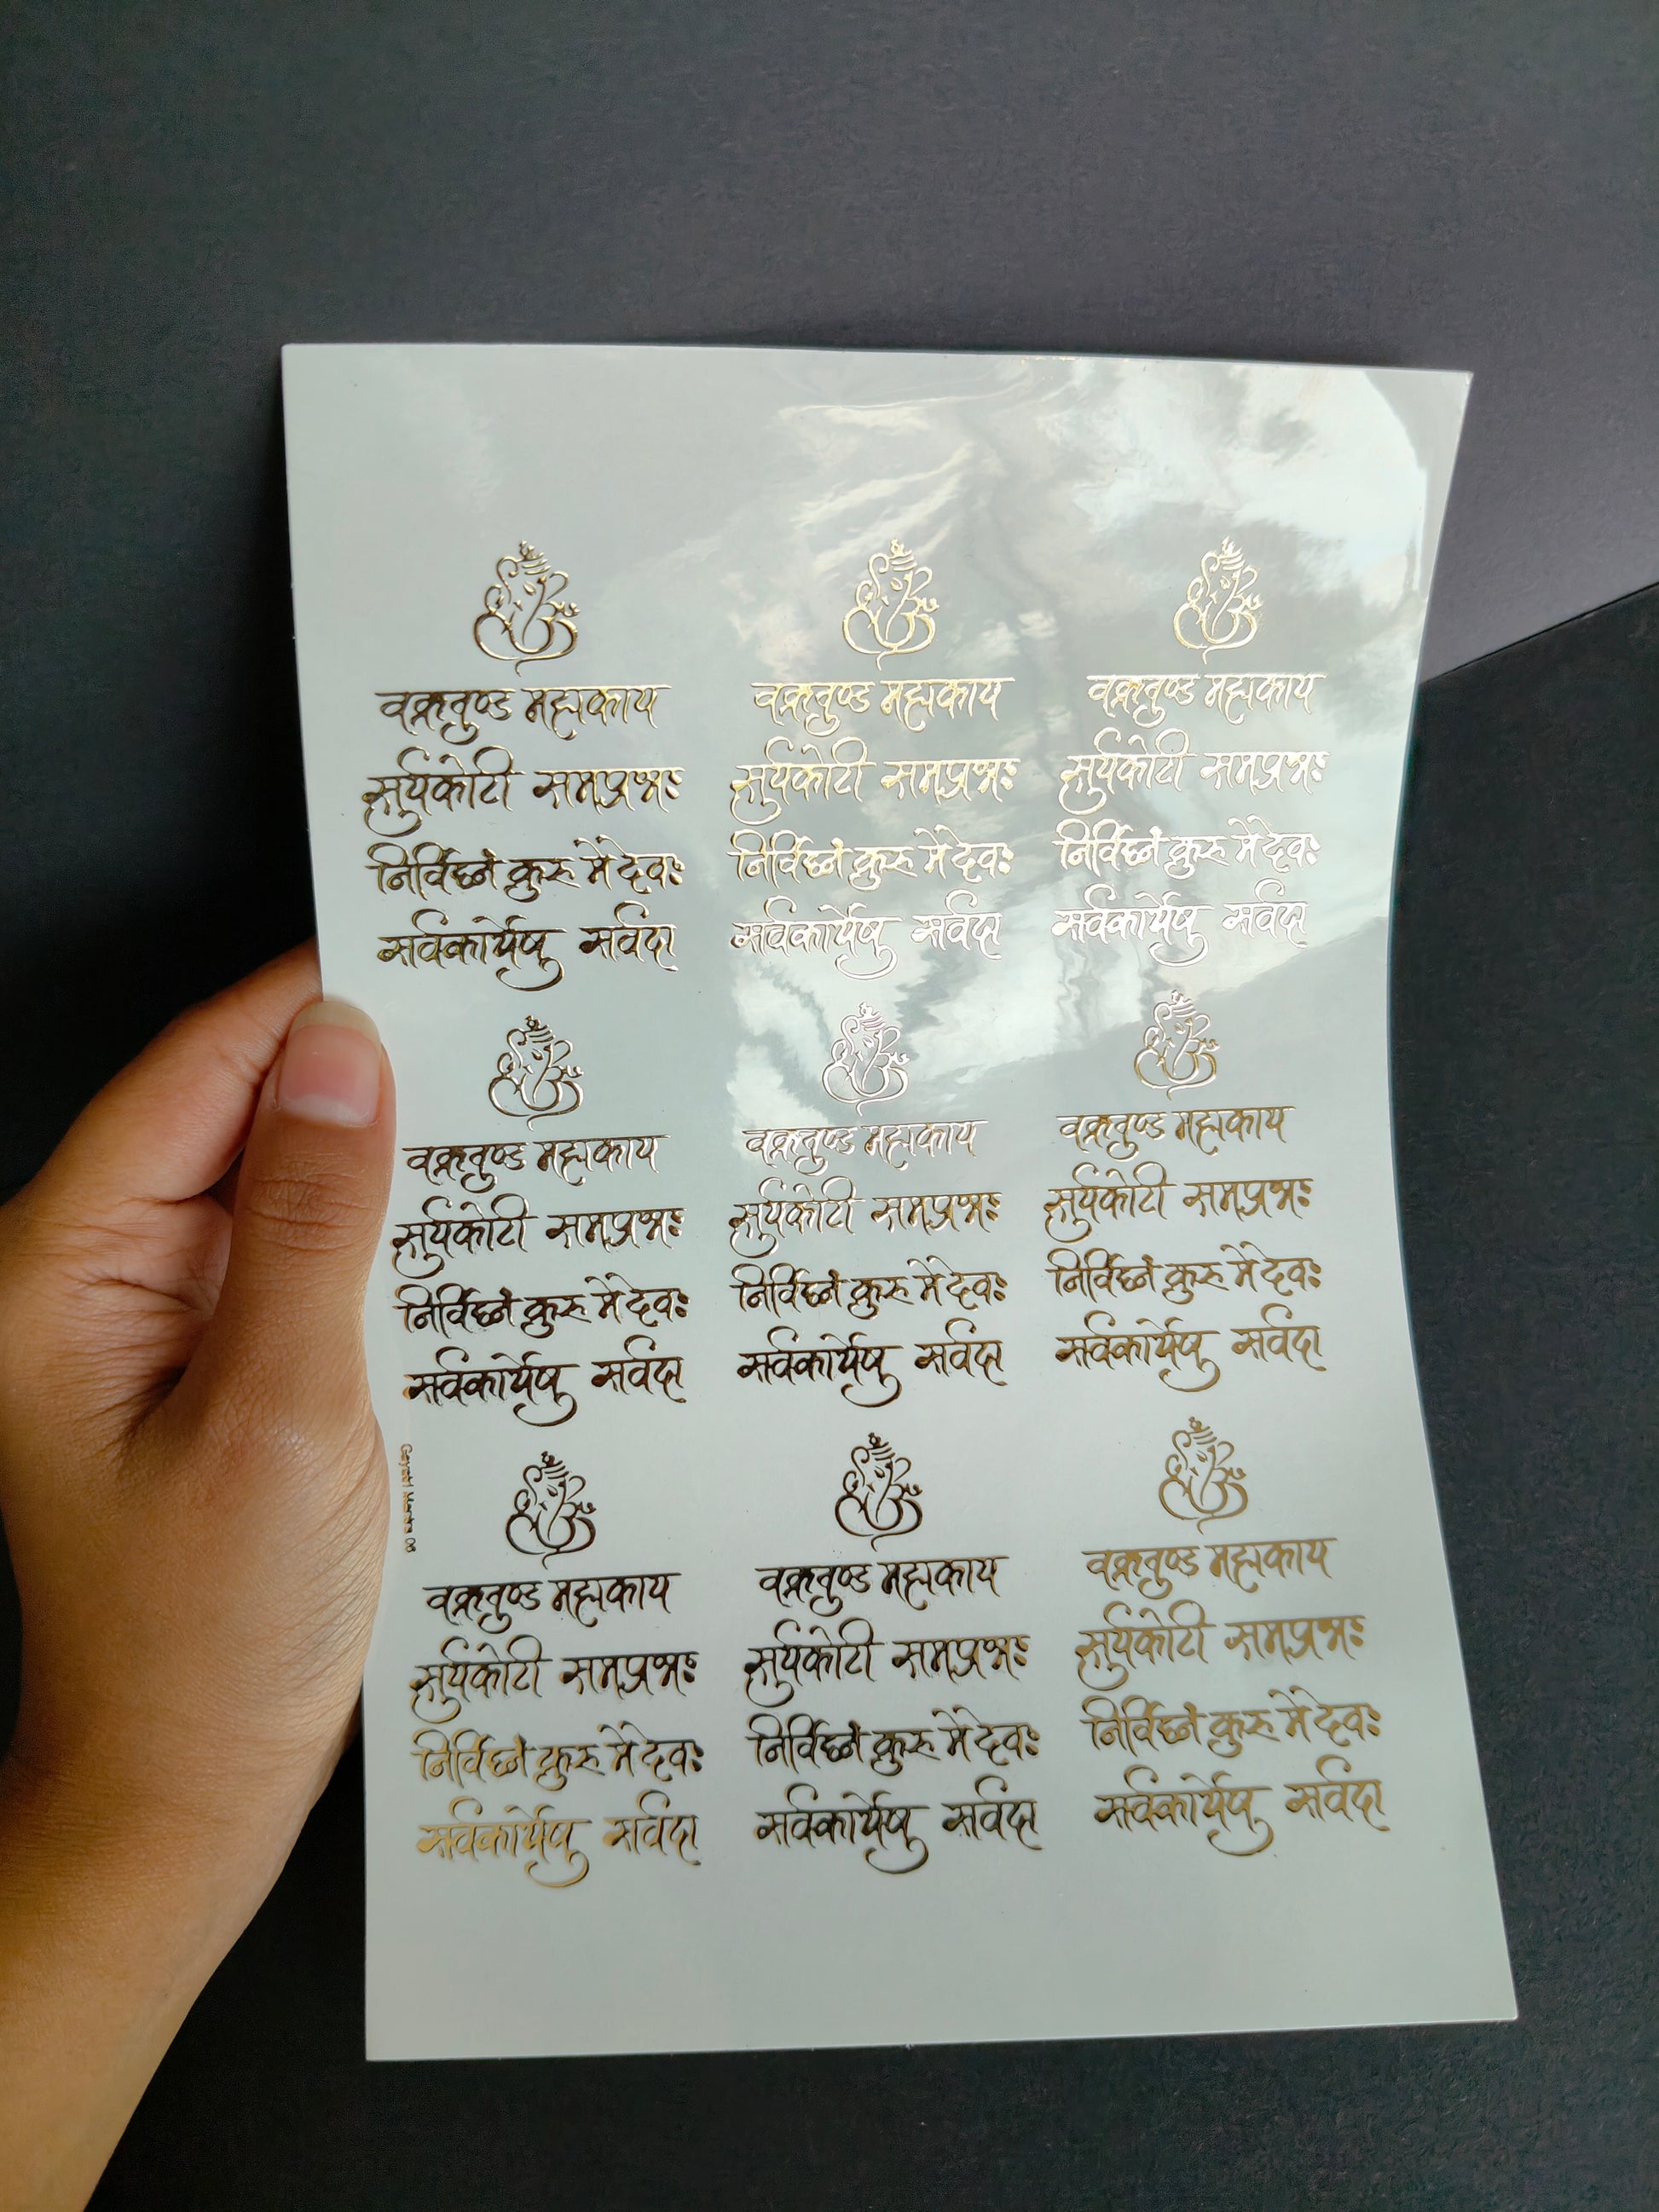 वक्रतुण्ड महाकाय
सुर्यकोटी समप्रभः
निर्विघ्नं कुरु में देवः
सर्वकार्येषु सर्वदा
वक्रतुण्ड महाकाय
सुर्यकोटी समप्रभः
निर्विघ्नं कुरु में देवः
सर्वकार्येषु सर्वदा
वक्रतुण्ड महाकाय
सुर्यकोटी समप्रभः
निर्विघ्नं कुरु में देवः
सर्वकार्येषु सर्वदा
वक्रतुण्ड महाकाय
सुर्यकोटी समप्रभः
निर्विघ्नं कुरु में देवः
सर्वकार्येषु सर्वदा
वक्रतुण्ड महाकाय
सुर्यकोटी समप्रभः
निर्विघ्नं कुरु में देवः
सर्वकार्येषु सर्वदा
वक्रतुण्ड महाकाय
सुर्यकोटी समप्रभः
निर्विघ्नं कुरु में देवः
सर्वकार्येषु सर्वदा
Gayatri Mantra 08
वक्रतुण्ड महाकाय
सुर्यकोटी समप्रभः
निर्विघ्नं कुरु में देवः
सर्वकार्येषु सर्वदा
वक्रतुण्ड महाकाय
सुर्यकोटी समप्रभः
निर्विघ्नं कुरु में देवः
सर्वकार्येषु सर्वदा
वक्रतुण्ड महाकाय
सुर्यकोटी समप्रभः
निर्विघ्नं कुरु में देवः
सर्वकार्येषु सर्वदा